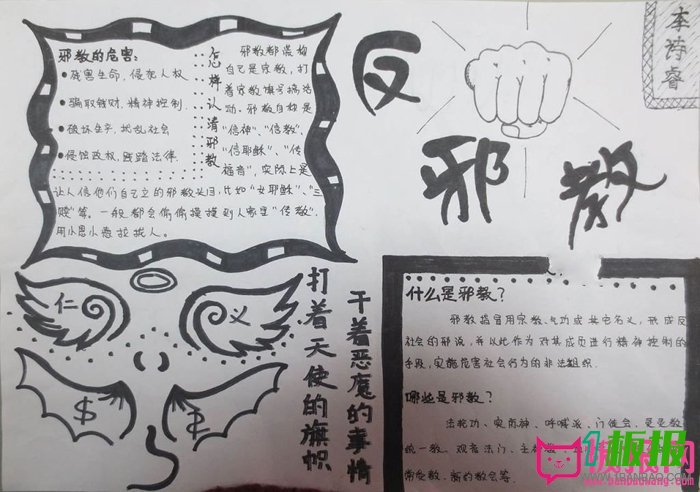 反
邪教
李诗睿
邪教的危害:
残害生命,侵犯人权
骗取钱财,精神控制
破坏生产,扰乱社会
侵蚀政权,践踏法律.
怎样认清邪教
邪教都谎称
自己是宗教,打
着宗教旗号搞活
动。邪教自称是
“信神”、“信教”、
“信耶稣”、“传
福音”,实际上是
让人信他们自己立的邪教头目,比如“女耶稣”、“三
赎”等。一般都会偷偷摸摸到人家里“传教”,
用小恩小惠拉拢人。
仁
义
$
打着天使的旗帜
干着恶魔的事情
什么是邪教?
邪教指冒用宗教、气功或其它名义,形成反
社会的邪说,并以此作为对其成员进行精神控制的
手段,实施危害社会行为的非法组织.
哪些是邪教?
法轮功、实际神、呼喊派、门徒会、灵灵教
统一教、观音法门、主神
新约教会等.
板报
WWW.1BANBAO.COM
www.banbaowang.com